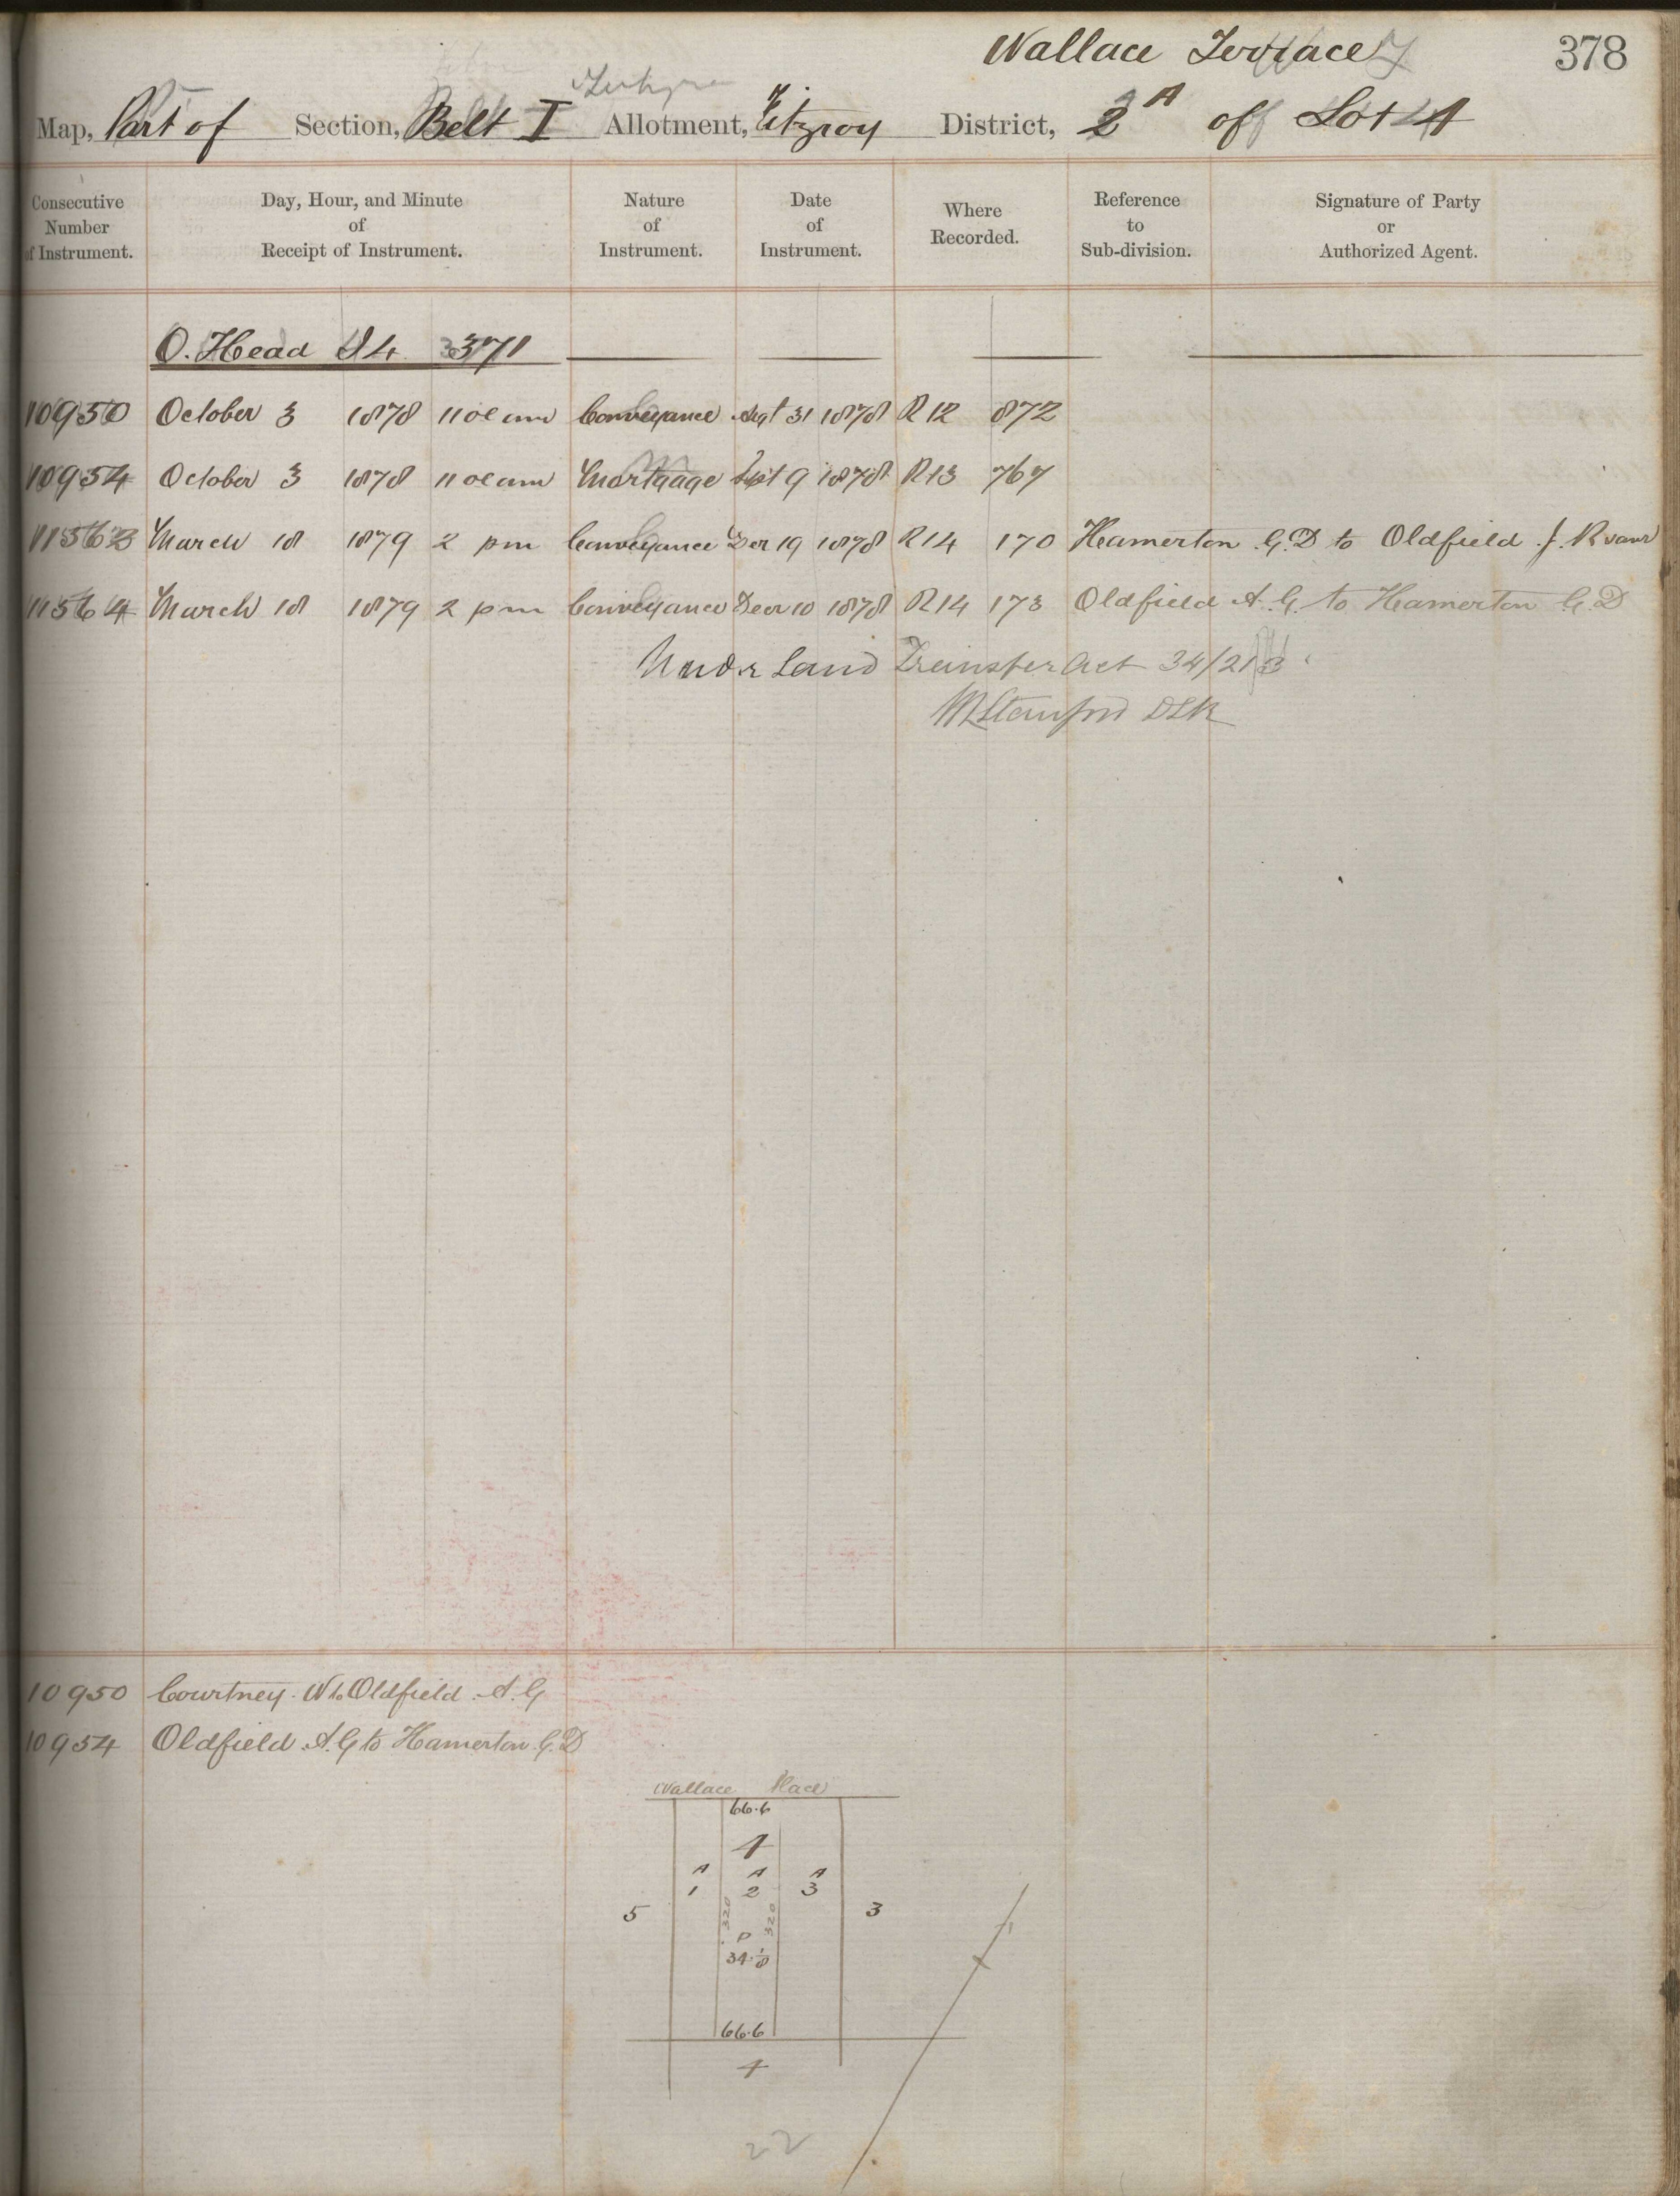 Wallace Terrace 378
Map, Part of Section, Belt I Allotment, Fitzroy District, 2A of Lot 4
Consecutive Number of Instrument.
Day, Hour, and Minute of Receipt of Instrument.
Nature of Instrument.
Date of Instrument.
Where Recorded.
Reference to Sub-division.
Signature of Party or Authorized Agent.
O. Head I4 371
10950 October 3 1878 11 oc am Conveyance 31 1878 R12 872
10954 October 3 1878 11 oc am Mortgage Sept 9 1878 R13 767
11563 March 18 1879 2 pm Conveyance Dec 19 1878 R14 170 Hamerton G.D to Oldfield
11564 March 18 1879 2 pm Conveyance Decr 10 1878 R14 173 Oldfield A.G. to Hamerton G.D
Under Land Transfer Act 34/213
DLR
10950 Courtney. W to Oldfield. A.G
10954 Oldfield. A.G to Hamerton. G.D
Wallace Place
66.6
4
A A A
1 2 3
5 320 320 3
P
34.1/8
66.6
4
22